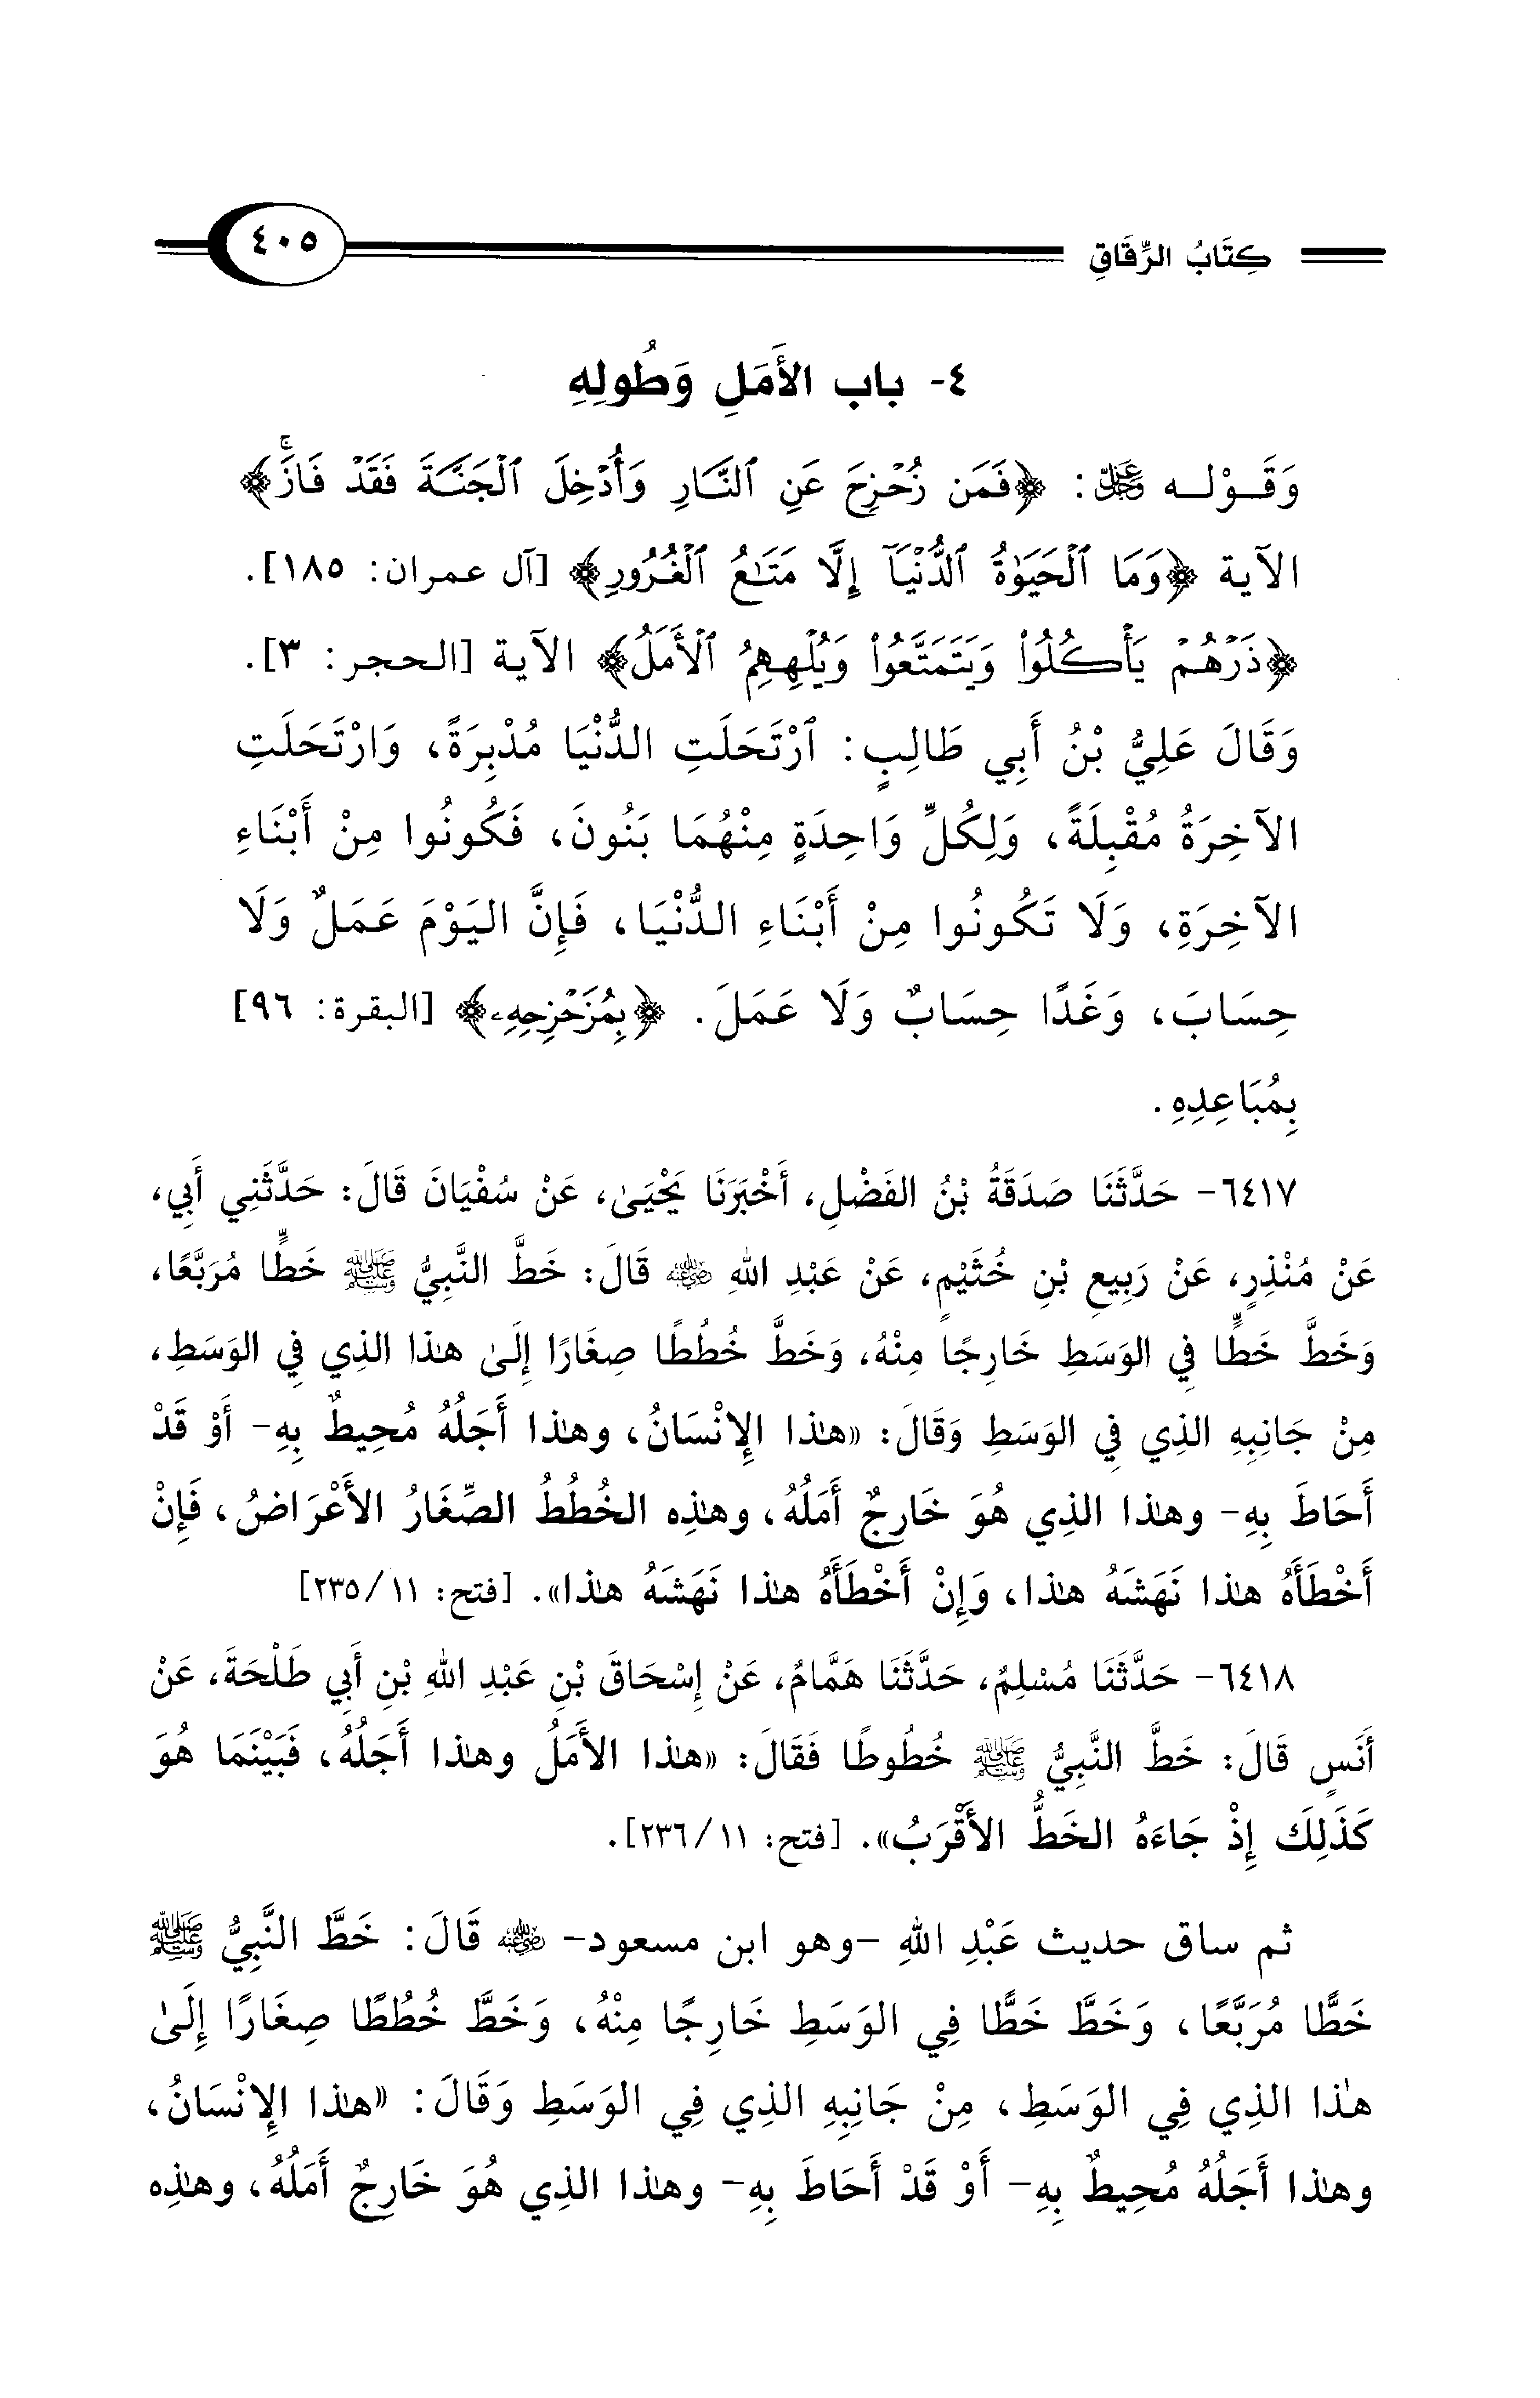 كِتَابُ الرِّقَاقِ ٤٠٥
٤- باب الأَمَلِ وَطُولِهِ
وَقَـوْلـه ﷿: ﴿فَمَن زُحْزِحَ عَنِ ٱلنَّارِ وَأُدْخِلَ ٱلْجَنَّةَ فَقَدْ فَازَۗ﴾
الآية ﴿وَمَا ٱلْحَيَوٰةُ ٱلدُّنْيَآ إِلَّا مَتَٰعُ ٱلْغُرُورِ﴾ [آل عمران: ١٨٥].
﴿ذَرْهُمْ يَأْكُلُوا۟ وَيَتَمَتَّعُوا۟ وَيُلْهِهِمُ ٱلْأَمَلُ﴾ الآية [الحجر: ٣].
وَقَالَ عَلِيُّ بْنُ أَبِي طَالِبٍ: ٱرْتَحَلَتِ الدُّنْيَا مُدْبِرَةً، وَارْتَحَلَتِ
الآخِرَةُ مُقْبِلَةً، وَلِكُلِّ وَاحِدَةٍ مِنْهُمَا بَنُونَ، فَكُونُوا مِنْ أَبْنَاءِ
الآخِرَةِ، وَلَا تَكُونُوا مِنْ أَبْنَاءِ الدُّنْيَا، فَإِنَّ اليَوْمَ عَمَلٌ وَلَا
حِسَابَ، وَغَدًا حِسَابٌ وَلَا عَمَلَ. ﴿بِمُزَحْزِحِهِۦ﴾ [البقرة: ٩٦]
بِمُبَاعِدِهِ.
٦٤١٧- حَدَّثَنَا صَدَقَةُ بْنُ الفَضْلِ، أَخْبَرَنَا يَحْيَىٰ، عَنْ سُفْيَانَ قَالَ: حَدَّثَنِي أَبِي،
عَنْ مُنْذِرٍ، عَنْ رَبِيعِ بْنِ خُثَيْمٍ، عَنْ عَبْدِ اللهِ ﵁ قَالَ: خَطَّ النَّبِيُّ ﷺ خَطًّا مُرَبَّعًا،
وَخَطَّ خَطًّا فِي الوَسَطِ خَارِجًا مِنْهُ، وَخَطَّ خُطُطًا صِغَارًا إِلَىٰ هذا الذِي فِي الوَسَطِ،
مِنْ جَانِبِهِ الذِي فِي الوَسَطِ وَقَالَ: «هٰذا الإِنْسَانُ، وهٰذا أَجَلُهُ مُحِيطٌ بِهِ- أَوْ قَدْ
أَحَاطَ بِهِ- وهٰذا الذِي هُوَ خَارِجٌ أَمَلُهُ، وهٰذِه الخُطُطُ الصِّغَارُ الأَعْرَاضُ، فَإِنْ
أَخْطَأَهُ هٰذا نَهَشَهُ هٰذا، وَإِنْ أَخْطَأَهُ هٰذا نَهَشَهُ هٰذا». [فتح: ١١/ ٢٣٥]
٦٤١٨- حَدَّثَنَا مُسْلِمٌ، حَدَّثَنَا هَمَّامٌ، عَنْ إِسْحَاقَ بْنِ عَبْدِ اللهِ بْنِ أَبِي طَلْحَةَ، عَنْ
أَنَسٍ قَالَ: خَطَّ النَّبِيُّ ﷺ خُطُوطًا فَقَالَ: «هٰذا الأَمَلُ وهٰذا أَجَلُهُ، فَبَيْنَمَا هُوَ
كَذَلِكَ إِذْ جَاءَهُ الخَطُّ الأَقْرَبُ». [فتح: ١١/ ٢٣٦].
ثم ساق حديث عَبْدِ اللهِ -وهو ابن مسعود- ﵁ قَالَ: خَطَّ النَّبِيُّ ﷺ
خَطًّا مُرَبَّعًا، وَخَطَّ خَطًّا فِي الوَسَطِ خَارِجًا مِنْهُ، وَخَطَّ خُطُطًا صِغَارًا إِلَىٰ
هٰذا الذِي فِي الوَسَطِ، مِنْ جَانِبِهِ الذِي فِي الوَسَطِ وَقَالَ: «هٰذا الإِنْسَانُ،
وهٰذا أَجَلُهُ مُحِيطٌ بِهِ- أَوْ قَدْ أَحَاطَ بِهِ- وهٰذا الذِي هُوَ خَارِجٌ أَمَلُهُ، وهٰذِه